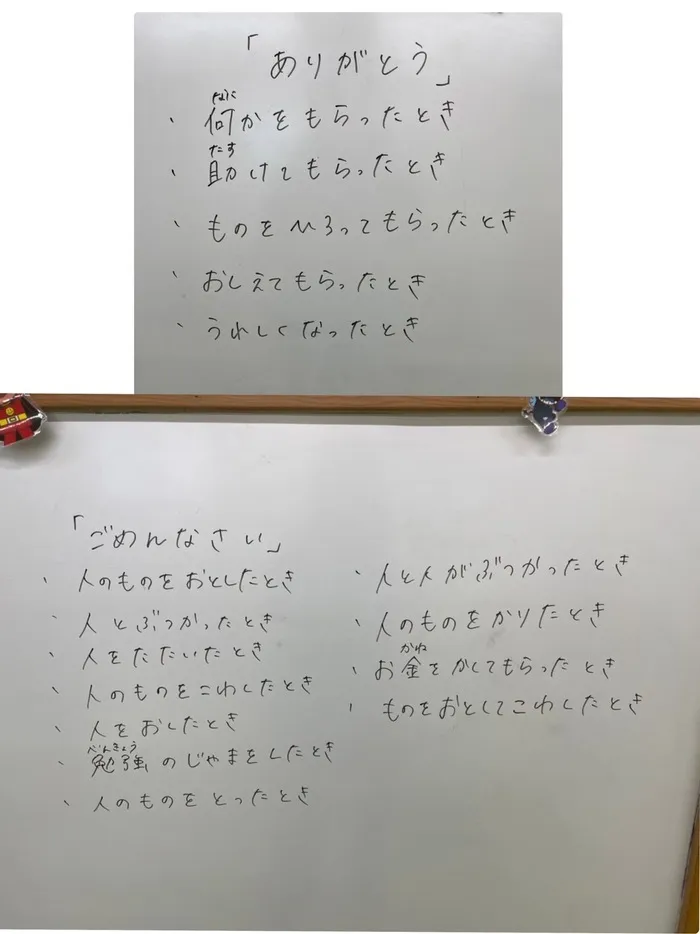 「ありがとう」
なに
・何かをもらったとき
たす
・助けてもらったとき
・ものをひろってもらったとき
・おしえてもらったとき
・うれしくなったとき
「ごめんなさい」
・人のものをおとしたとき
・人とぶつかったとき
・人をたたいたとき
・人のものをこわしたとき
・人をおしたとき
べんきょう
・勉強のじゃまをしたとき
・人のものをとったとき
・人と人がぶつかったとき
・人のものをかりたとき
かね
・お金をかしてもらったとき
・ものをおとしてこわしたとき